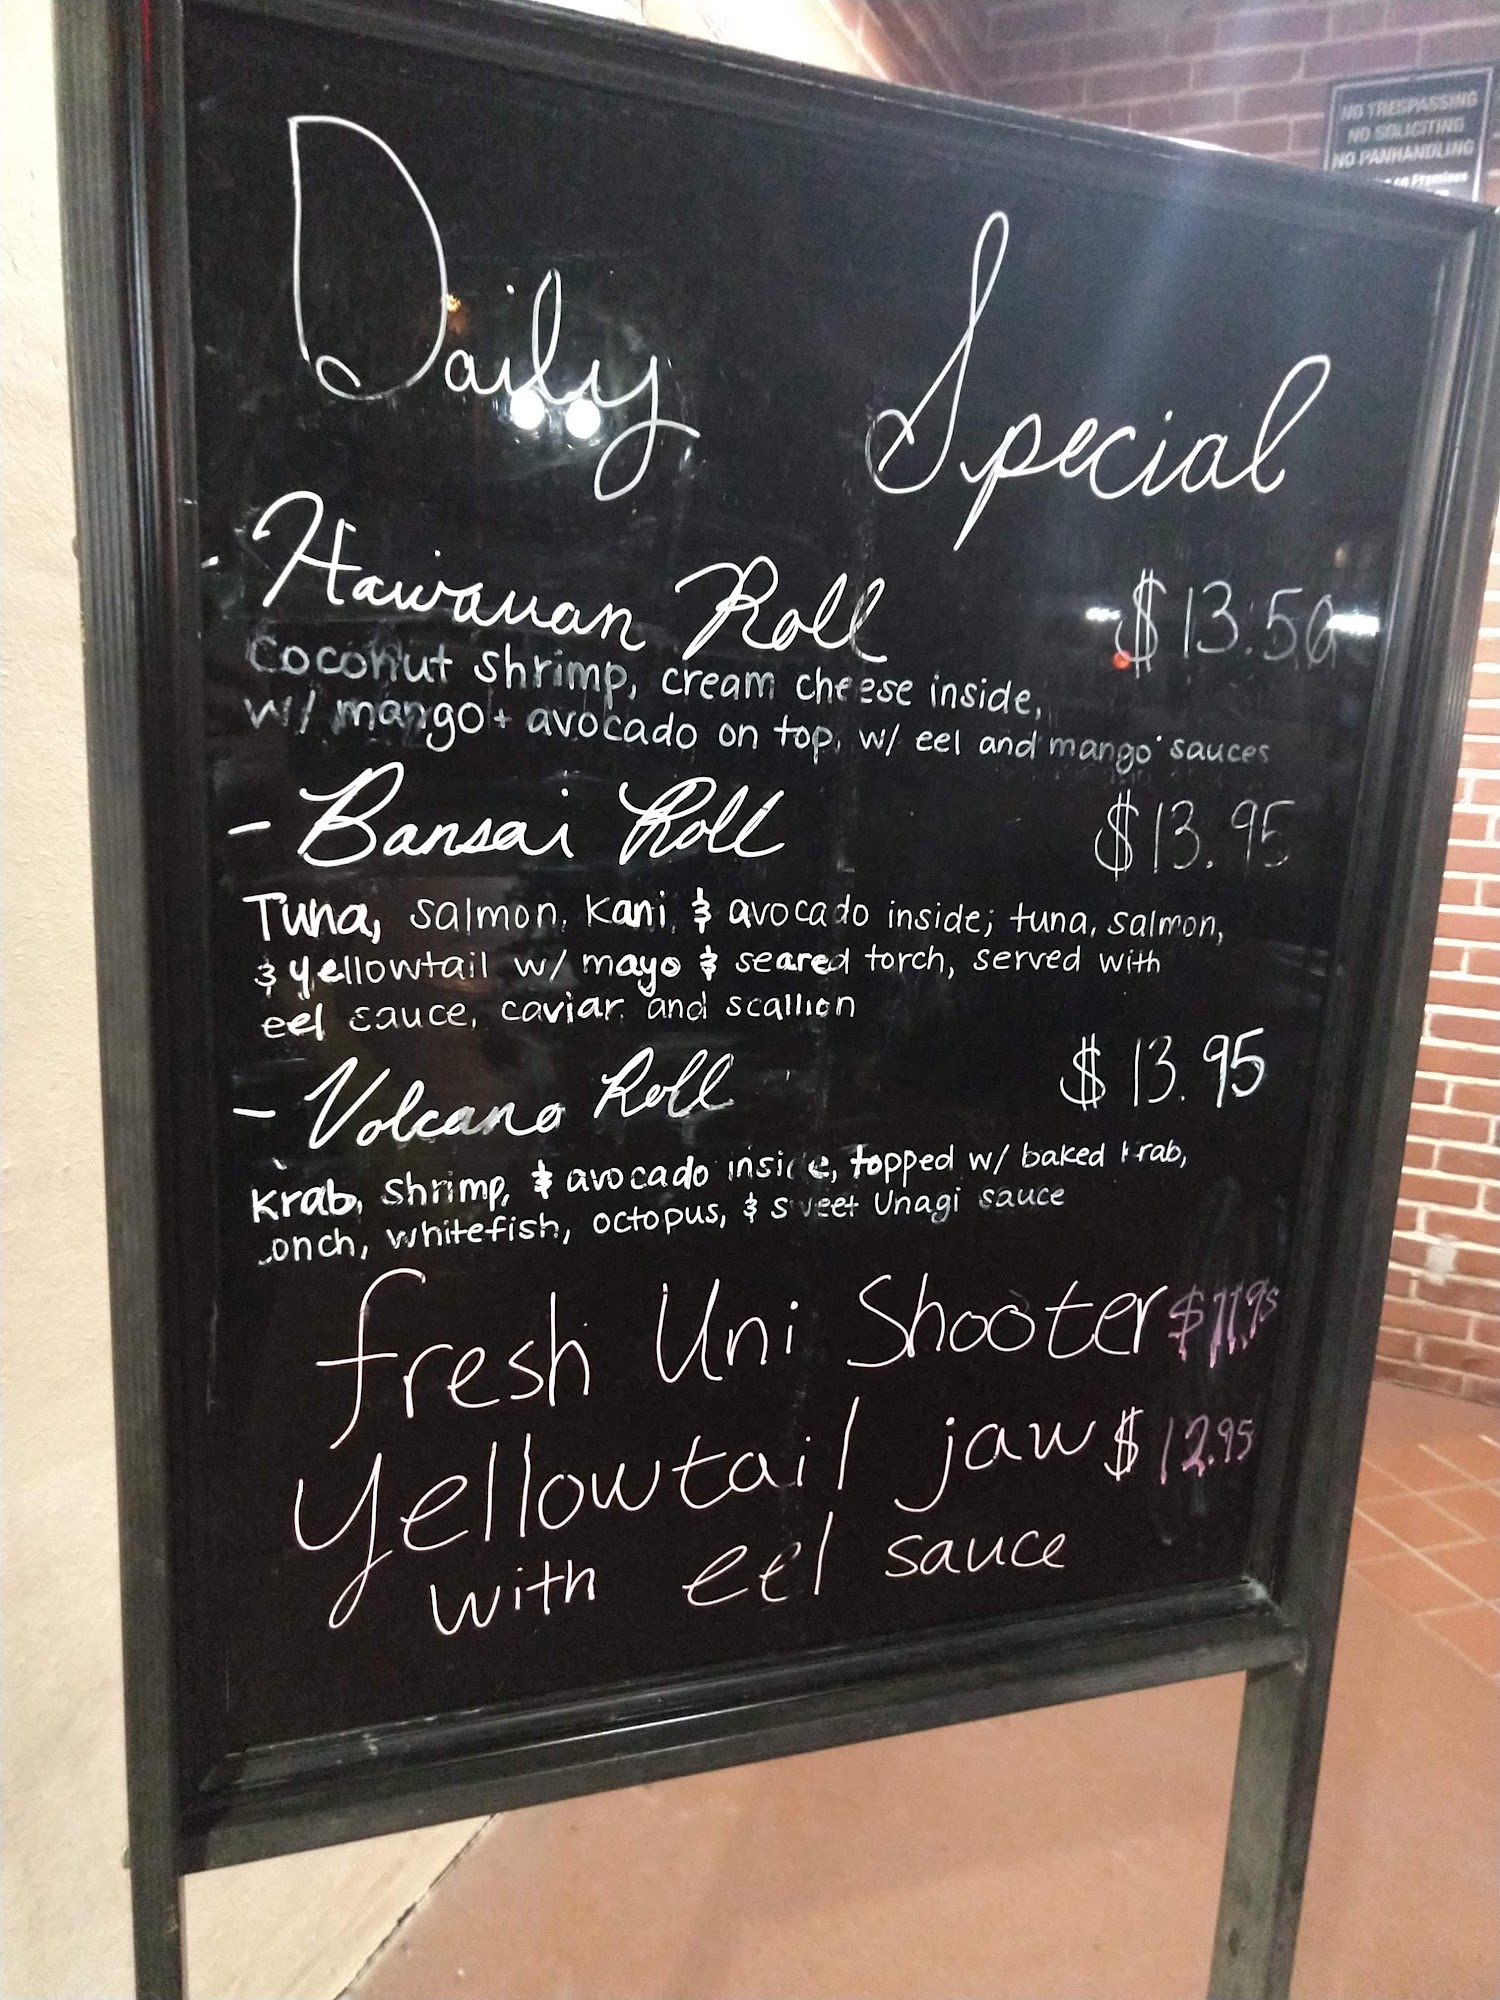 Daily Special
- Hawaiian Roll $13.50
Coconut shrimp, cream cheese inside,
w/ mango + avocado on top, w/ eel and mango sauces
- Bansai Roll $13.95
Tuna, salmon, kani, & avocado inside; tuna, salmon,
& yellowtail w/ mayo & seared torch, served with
eel sauce, caviar, and scallion
- Volcano Roll $13.95
Krab, shrimp, & avocado inside, topped w/ baked krab,
conch, whitefish, octopus, & sweet Unagi sauce
fresh Uni Shooter $11.95
Yellowtail jaw $12.95
with eel sauce
NO TRESPASSING
NO SOLICITING
NO PANHANDLING
Premises